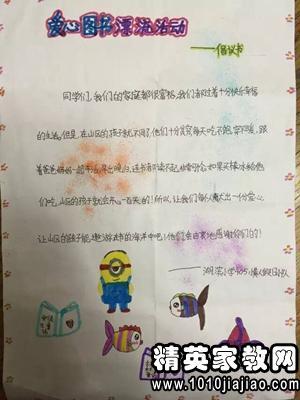 爱心图书漂流活动
——倡议书
同学们,我们的家庭都很富裕,我们都过着十分快乐幸福
的生活,但是,在山区的孩子就不同了,他们十分贫穷,每天吃不饱,穿不暖,跟
着爸爸妈妈一起干活,早出晚归,连书都读不起,
们吃,山区的孩子就会开心一百天的!所以,让我们每人献出一份爱心,
让山区的孩子能遨游在书的海洋中吧!他们会由衷地感谢你们的!
精英家教网
www.1010jiajiao.com